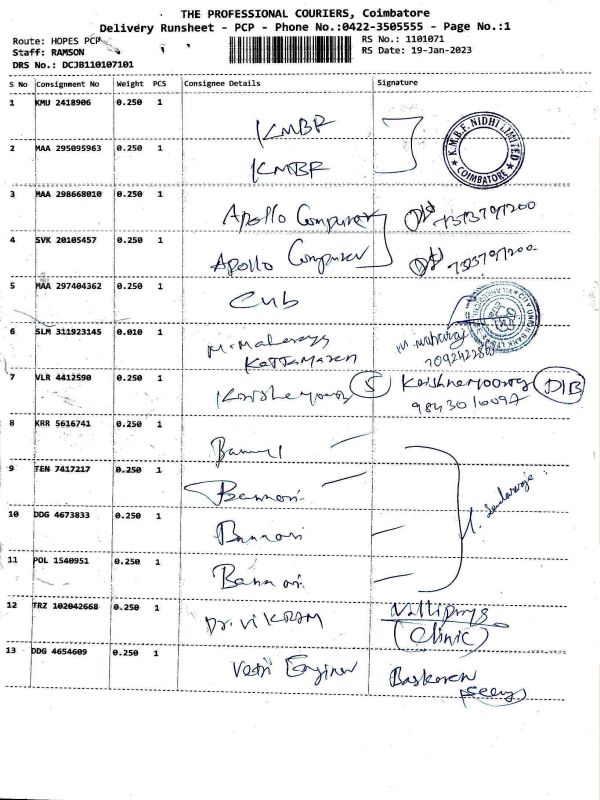 THE PROFESSIONAL COURIERS, Coimbatore
Delivery Runsheet - PCP - Phone No.:0422-3505555 - Page No.:1
Route: HOPES PCP
RS No.: 1101071
Staff: RAMSON
RS Date: 19-Jan-2023
DRS No.: DCJB110107101
S No Consignment No Weight PCS Consignee Details Signature
1 KMU 2418906 0.250 1 KMBF
K.M.B.F. NIDHI LIMITED COIMBATORE
2 MAA 295095963 0.250 1 KMBF
3 MAA 298668010 0.250 1 Apollo Computer
4 SVK 20105457 0.250 1 Apollo Computer
5 MAA 297404362 0.250 1 Cub
CITY UNION BANK
6 SLM 311923145 0.010 1 M. Maharaja
7 VLR 4412590 0.250 1 Krishnamoorthy S Krishnamoorthy
9843010097
8 KRR 5616741 0.250 1
9 TEN 7417217 0.250 1 Bannari
10 DDG 4673833 0.250 1 Bannari
11 POL 1540951 0.250 1 Bannari
12 TRZ 102042668 0.250 1 Dr. VIKRAM
(Clinic)
13 DDG 4654609 0.250 1 Vetri Baskaran